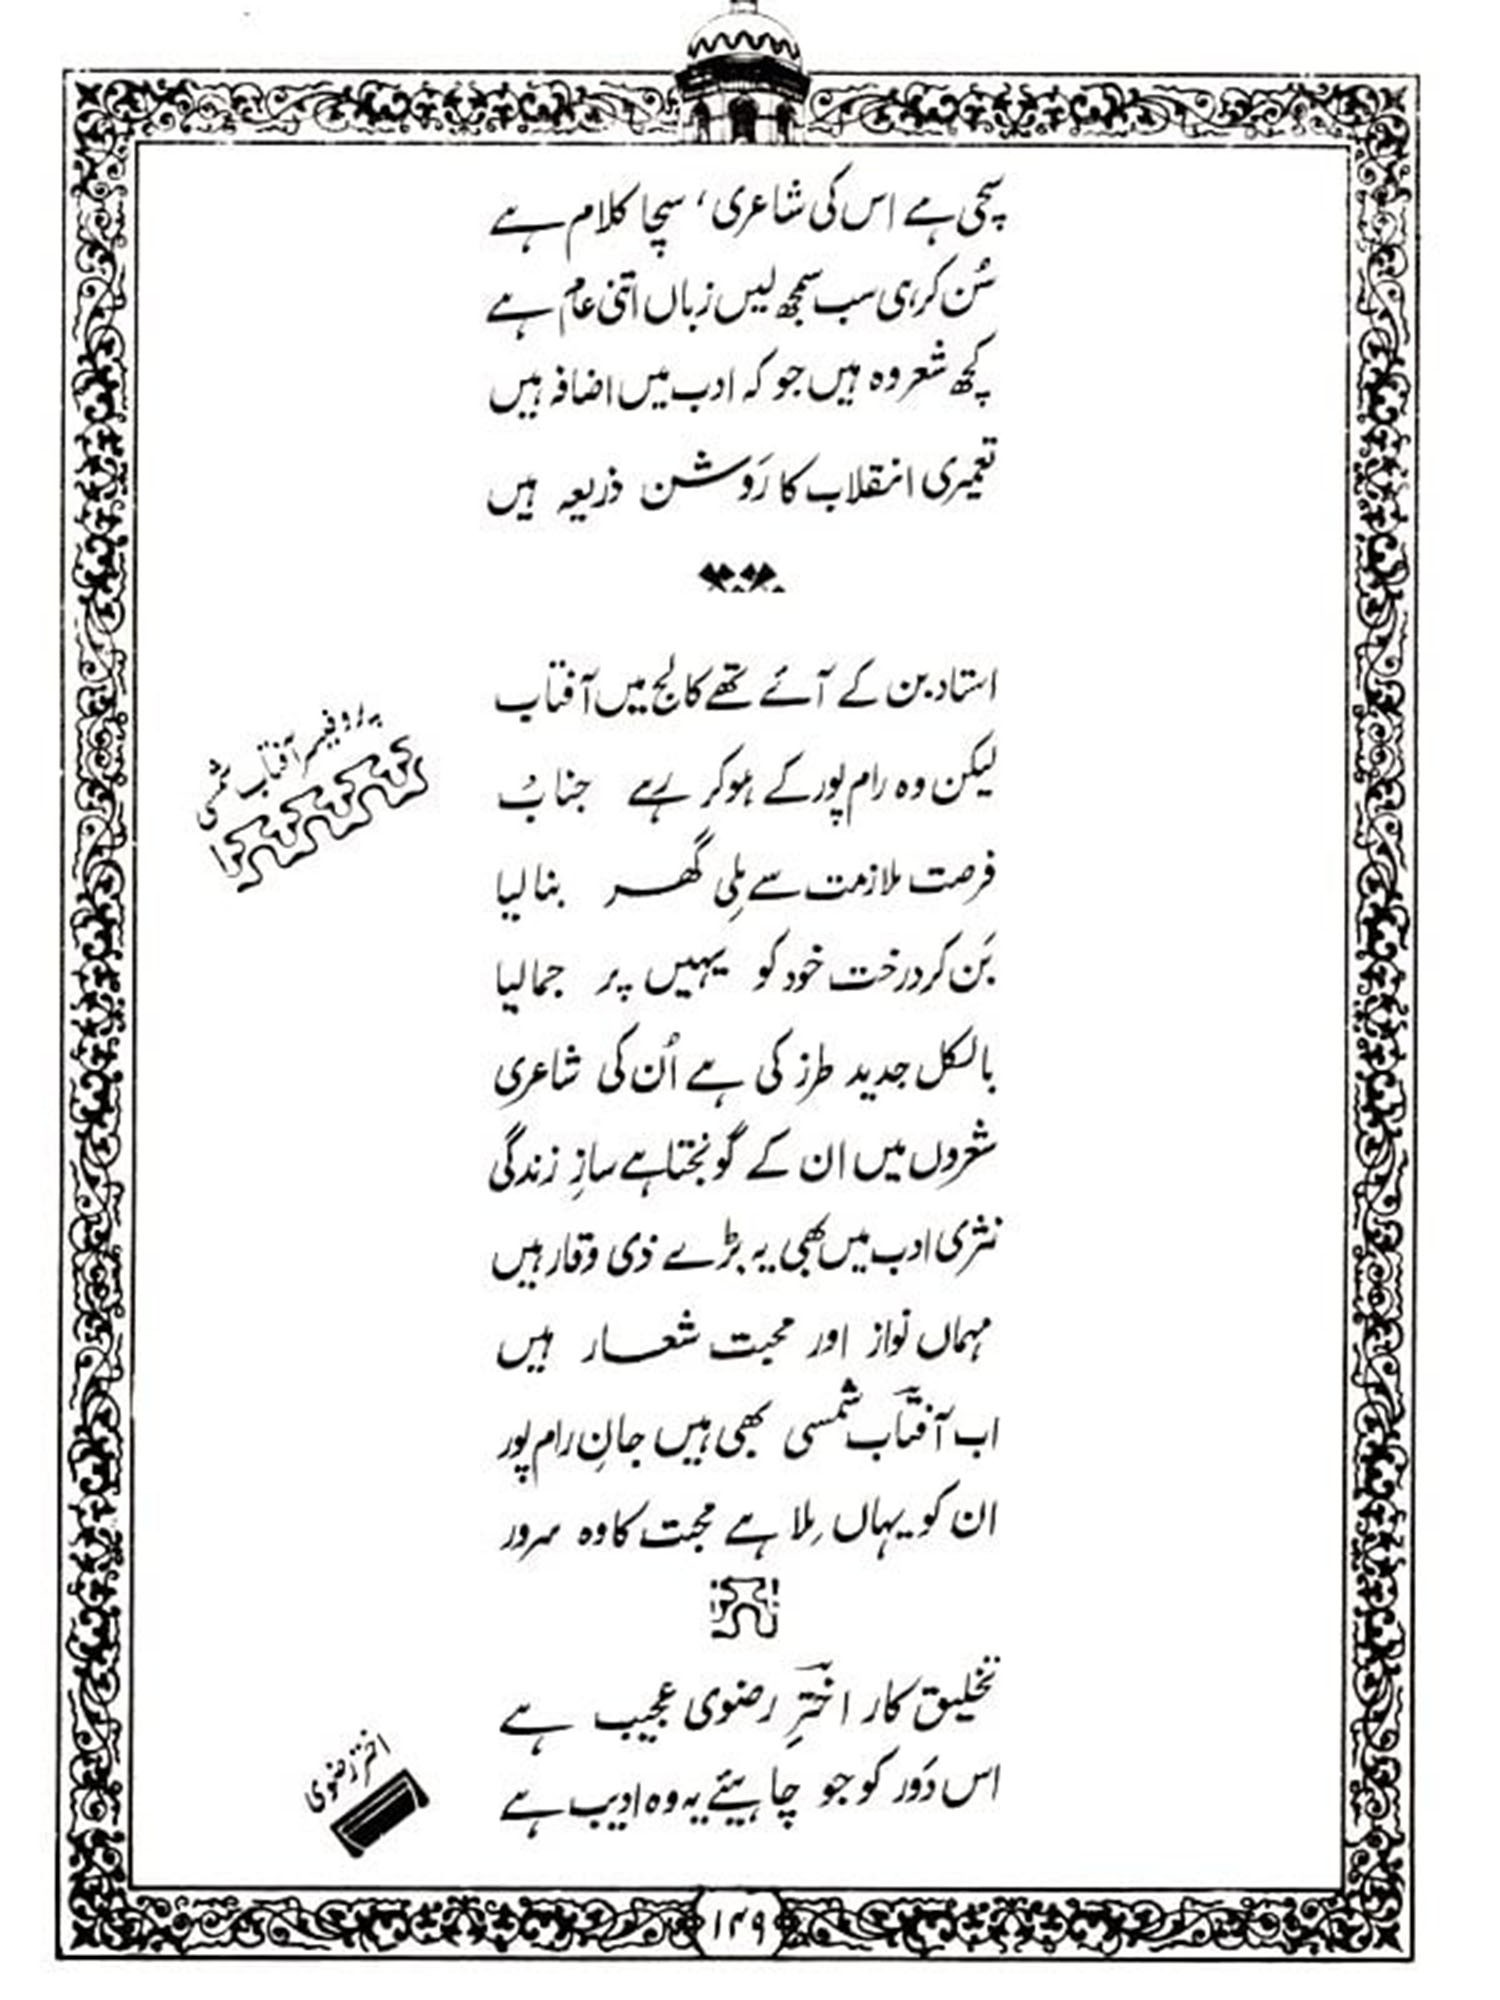 سچی ہے اس کی شاعری، سچا کلام ہے
سُن کر ہی سب سمجھ لیں زباں اتنی عام ہے
کچھ شعر وہ ہیں جو کہ ادب میں اضافہ ہیں
تعمیری انقلاب کا رَوشن ذریعہ ہیں
استاد بن کے آئے تھے کالج میں آفتاب
پروفیسر آفتاب شمسی
لیکن وہ رام پور کے ہو کر رہے جناب
فرصت ملازمت سے مِلی گھر بنا لیا
بَن کر درخت خود کو یہیں پر جما لیا
بالکل جدید طرز کی ہے اُن کی شاعری
شعروں میں ان کے گونجتا ہے سازِ زندگی
نثری ادب میں بھی یہ بڑے ذی وقار ہیں
مہماں نواز اور محبت شعار ہیں
اب آفتاب شمسی بھی ہیں جانِ رام پور
ان کو یہاں مِلا ہے محبت کا وہ سرور
تخلیق کار اخترِ رضوی عجیب ہے
اختر رضوی
اس دَور کو جو چاہیئے یہ وہ ادیب ہے
۱۴۹